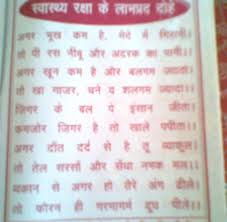 स्वास्थ्य रक्षा के लाभप्रद दोहे
अगर भूख कम है, मेदे में गिरानी।
तो पी रस नींबू और अदरक का पानी।।
अगर खून कम है और बलगम ज्यादा।
तो खा गाजर, चने व शलगम ज्यादा।।
जिगर के बल पे इंसान जीता।
कमजोर जिगर है तो खाले पपीता।।
अगर दाँत दर्द से है तू व्याकुल।
तो तेल सरसों और सेंधा नमक मल।।
थकान से अगर हो तेरे अंग ढीले।
तो फौरन ही गरमागर्म दूध पीले।।